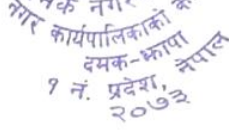 नगर कार्यपालिकाको
दमक-झापा
१ नं. प्रदेश, नेपाल
२०७३